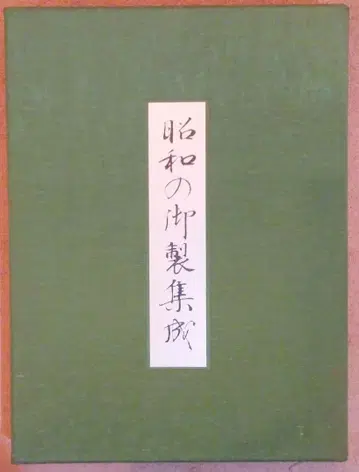 昭和の御製集成